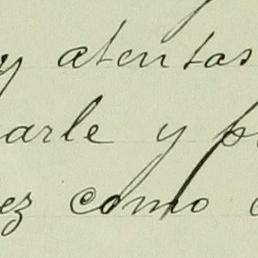 y atentas
arle y p
ez como